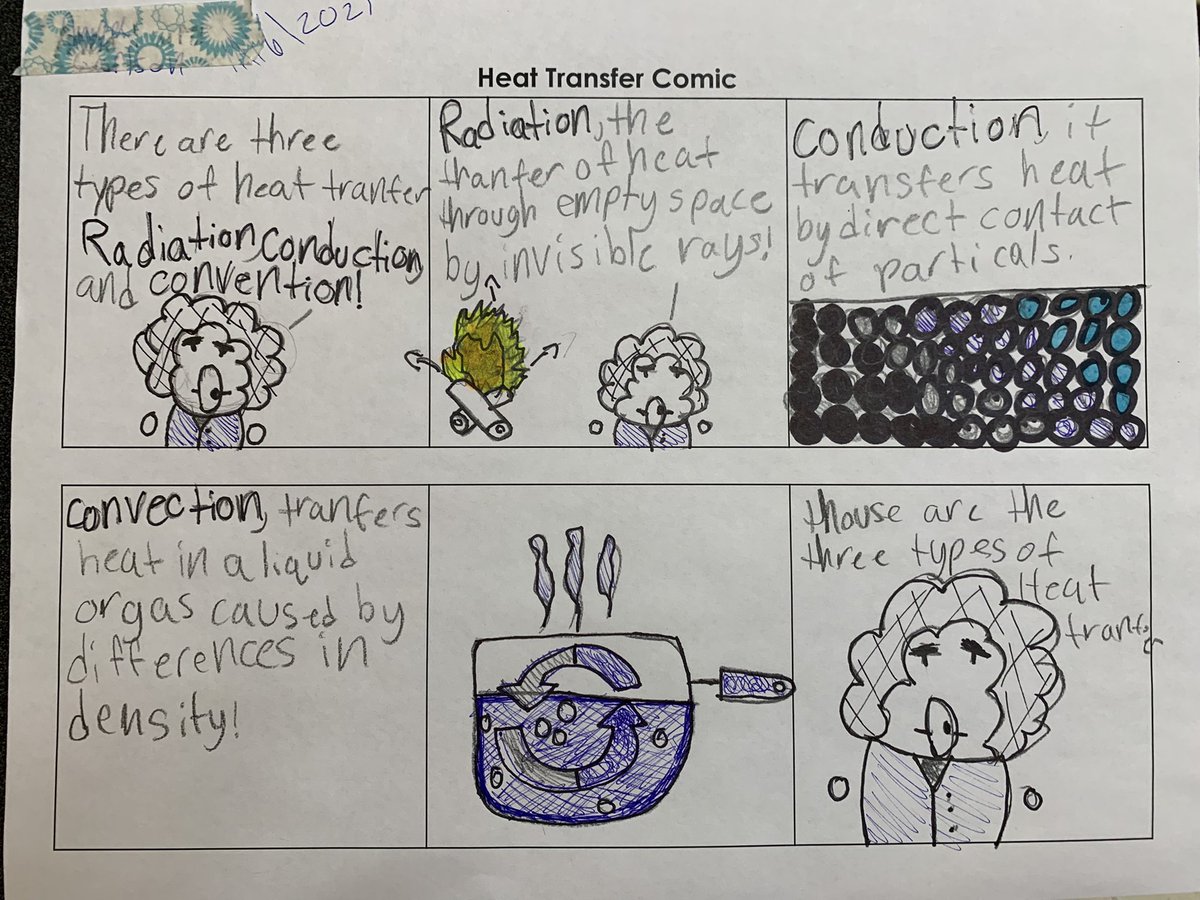 16/2021
Heat Transfer Comic
There are three
types of heat tranfer
Radiation, conduction,
and convention!
Radiation, the
tranfer of heat
through empty space
by invisible rays!
Conduction, it
transfers heat
by direct contact
of particals.
convection, tranfers
heat in a liquid
or gas caused by
differences in
density!
thouse are the
three types of
Heat
tranfer